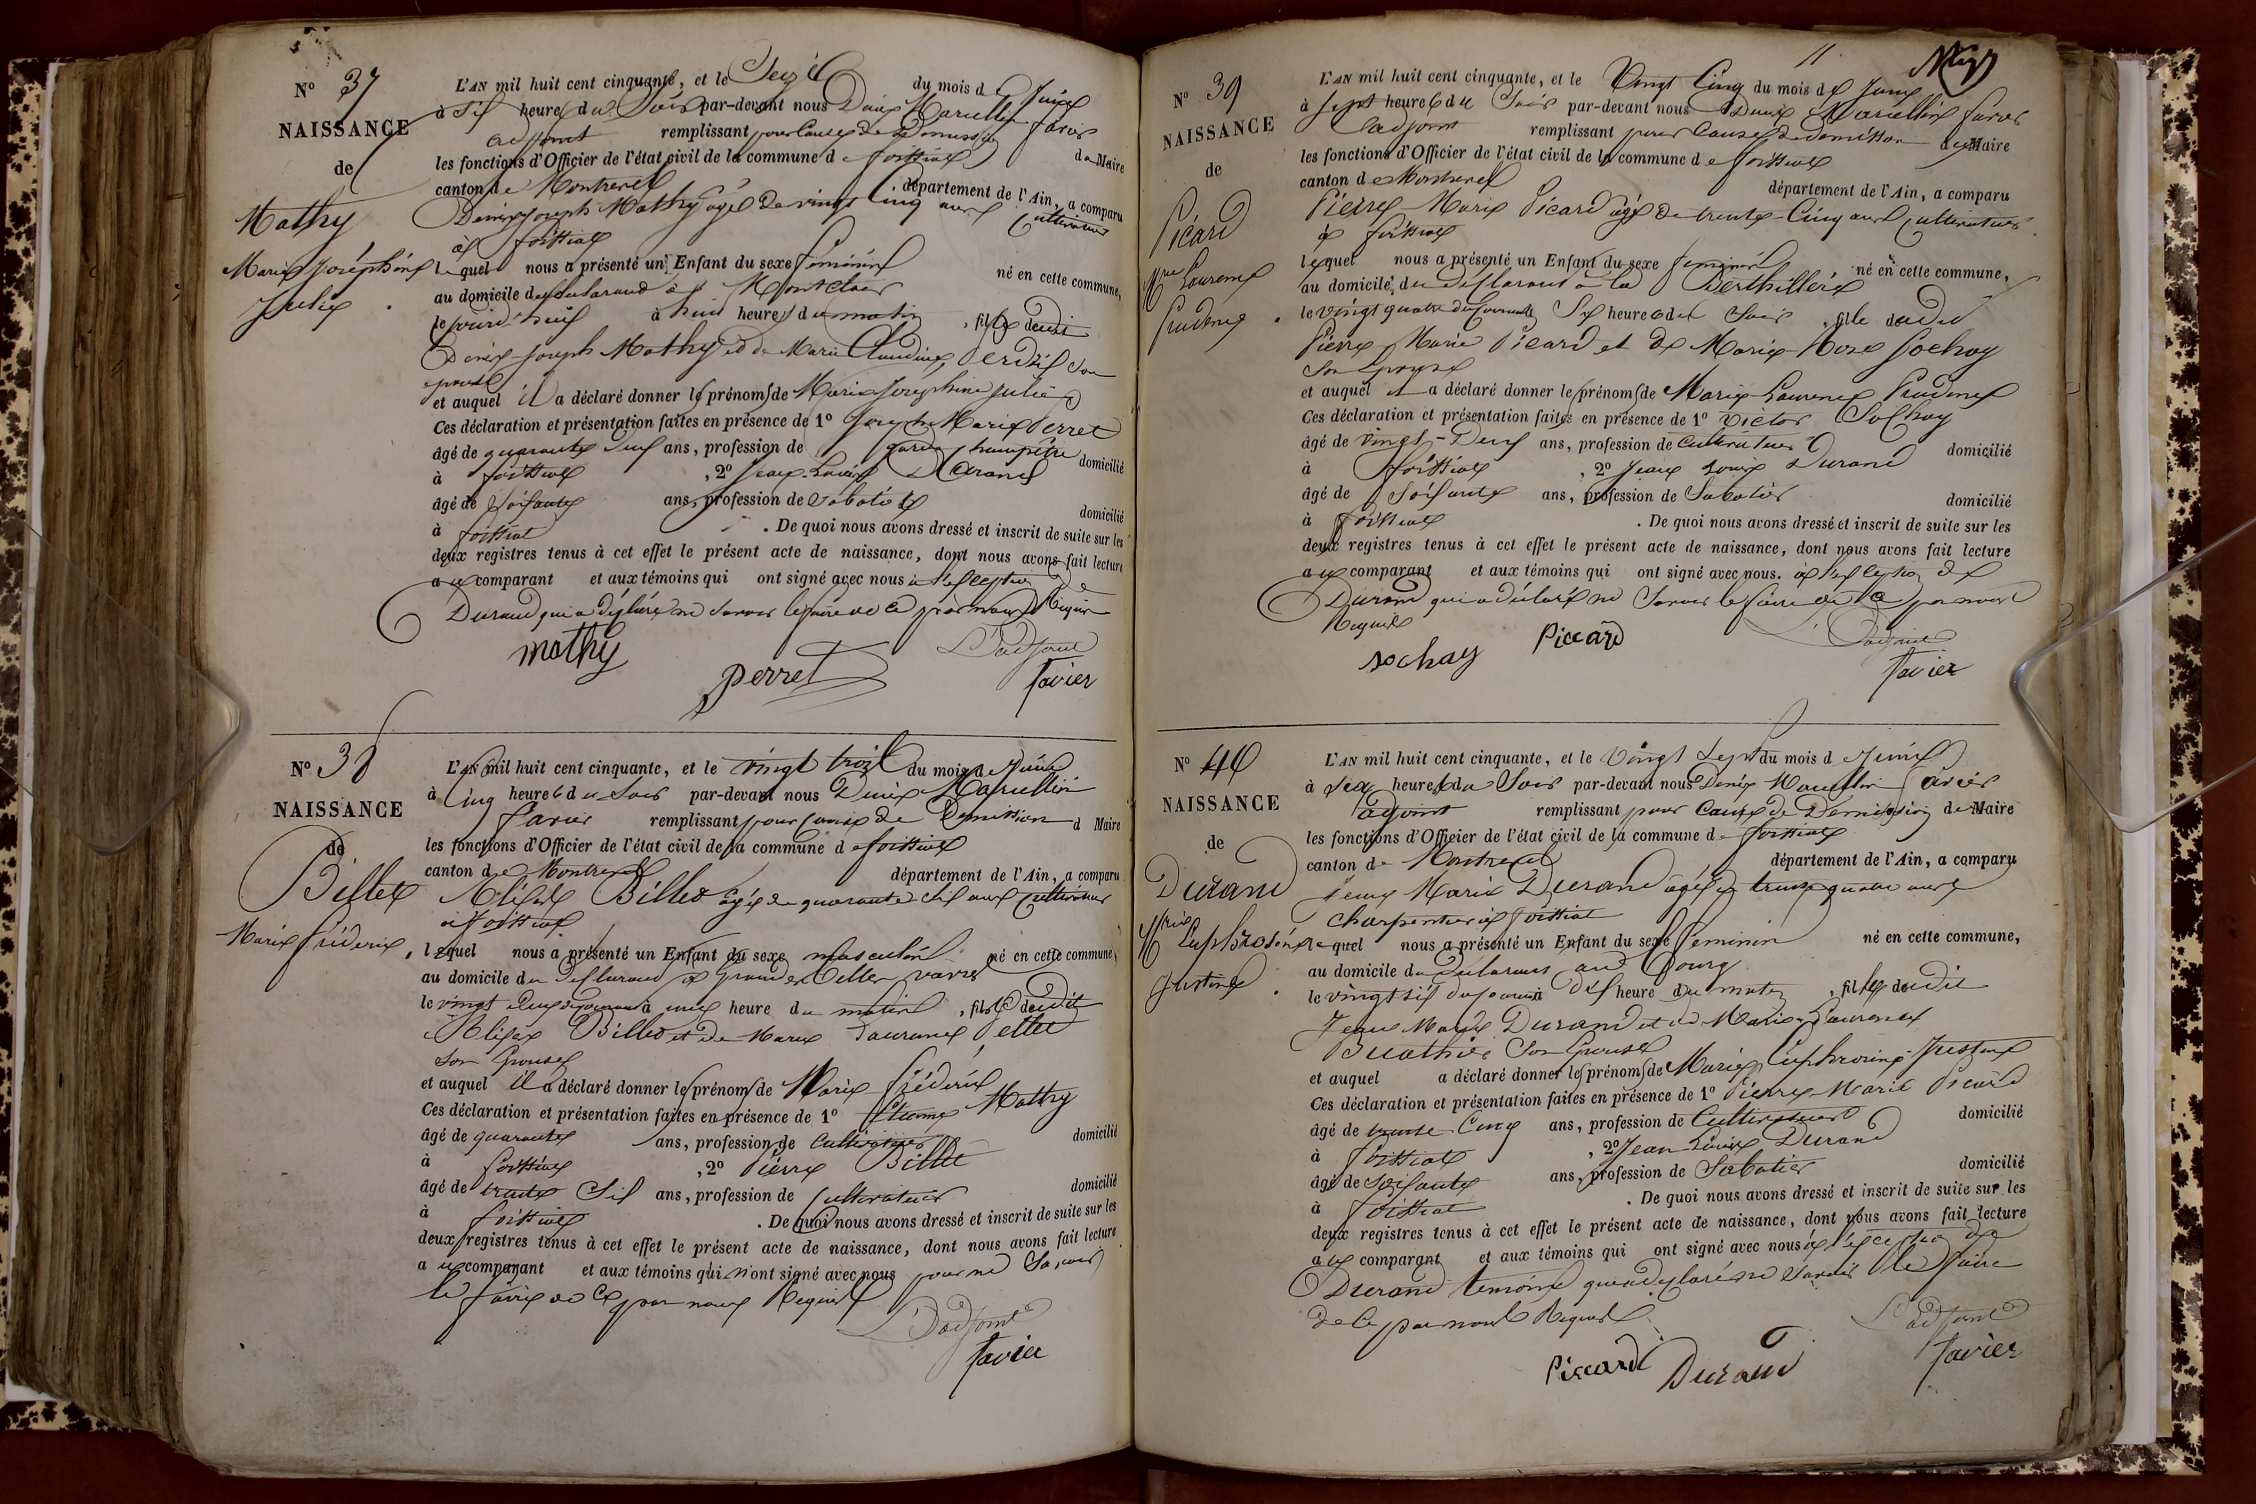 N° 37
NAISSANCE
de
Mathy
Marie Joséphine
Julie
L'AN mil huit cent cinquante, et le Seize du mois de Juin
à Six heures du Soir par-devant nous Denis Marcellin Favier
adjoint remplissant pour Cause de Démission
les fonctions d'Officier de l'état civil de la commune de foissiat de Maire
canton de Montrevel département de l'Ain, a comparu
Denis Joseph Mathy âgé de vingt Cinq ans Cultivateur
à foissiat
lequel nous a présenté un Enfant du sexe féminin né en cette commune,
au domicile du déclarant à Montclair
le jourd'hui à huit heures du matin, fille dudit
Denis Joseph Mathy et de Marie Claudine Son
épouse
et auquel il a déclaré donner les prénoms de Marie Josephine Julie
Ces déclaration et présentation faites en présence de 1° Joseph Marie Perret
âgé de quarante neuf ans, profession de garde champêtre domicilié
à foissiat, 2° Jean-Louis Durand
âgé de Soixante ans, profession de Sabotier domicilié
à foissiat. De quoi nous avons dressé et inscrit de suite sur les
deux registres tenus à cet effet le présent acte de naissance, dont nous avons fait lecture
au comparant et aux témoins qui ont signé avec nous à l'exception de
Durand qui a déclaré ne Savoir le faire de ce par nous Requis
mathy perret L'adjoint
favier
N° 38
NAISSANCE
de
Billet
Marie fréderic
L'AN mil huit cent cinquante, et le vingt trois du mois de Juin
à Cinq heures du Soir par-devant nous Denis Marcellin
Favier remplissant pour Cause de Démission d Maire
les fonctions d'Officier de l'état civil de la commune de foissiat
canton de Montrevel département de l'Ain, a comparu
Alexis Billet âgé de quarante six ans Cultivateur
à foissiat
lequel nous a présenté un Enfant du sexe masculin né en cette commune,
au domicile du Déclarant
le vingt deux du courant à une heure du matin, fils dudit
Alexis Billet et de Marie Laurence
Son Epouse
et auquel il a déclaré donner les prénoms de Marie fréderic
Ces déclaration et présentation faites en présence de 1° Etienne Mathy
âgé de quarante ans, profession de Cultivateur domicilié
à foissiat, 2° Pierre Billet
âgé de trente Six ans, profession de Cultivateur domicilié
à foissiat. De quoi nous avons dressé et inscrit de suite sur les
deux registres tenus à cet effet le présent acte de naissance, dont nous avons fait lecture
au comparant et aux témoins qui n'ont signé avec nous pour ne Savoir
le faire de ce par nous Requis
L'adjoint
favier
11.
N° 39
NAISSANCE
de
Picard
Mie Laurence
Prudence
L'AN mil huit cent cinquante, et le Vingt Cinq du mois de Juin
à Sept heures du Soir par-devant nous Denis Marcellin Favier
adjoint remplissant pour Cause de démission de Maire
les fonctions d'Officier de l'état civil de la commune de foissiat
canton de Montrevel département de l'Ain, a comparu
Pierre Marie Picard âgé de trente-Cinq ans Cultivateur
à foissiat
lequel nous a présenté un Enfant du sexe feminin né en cette commune,
au domicile du Déclarant à la
le vingt quatre du Courant Six heures du Soir, fille dudit
Pierre Marie Picard et de Marie Rose Sochay
Son Epouse
et auquel il a déclaré donner les prénoms de Marie Laurence Prudence
Ces déclaration et présentation faites en présence de 1° Victor Sochay
âgé de vingt-Deux ans, profession de Cultivateur domicilié
à foissiat, 2° Jean Louis Durand
âgé de Soixante ans, profession de Sabotier domicilié
à foissiat. De quoi nous avons dressé et inscrit de suite sur les
deux registres tenus à cet effet le présent acte de naissance, dont nous avons fait lecture
au comparant et aux témoins qui ont signé avec nous. à l'exception de
Durand qui a déclaré ne Savoir le faire de ce par nous
Requis
sochay Piccard L'adjoint
favier
N° 40
NAISSANCE
de
Durand
Mrie Euphrosine
Justine
L'AN mil huit cent cinquante, et le Vingt Sept du mois d Juin
à Six heures du Soir par-devant nous Denis Marcellin Favier
adjoint remplissant pour Cause de Démission de Maire
les fonctions d'Officier de l'état civil de la commune de foissiat
canton de Montrevel département de l'Ain, a comparu
Jean Marie Durand âgé de trente quatre ans
charpentier à foissiat
lequel nous a présenté un Enfant du sexe feminin né en cette commune,
au domicile du Déclarant au Bourg
le vingt six du courant à dix heure du matin, fille dudit
Jean Marie Durand et de Marie Laurence
Buathier Son Epouse
et auquel a déclaré donner les prénoms de Marie Euphrosine Justine
Ces déclaration et présentation faites en présence de 1° Pierre Marie Picard
âgé de trente Cinq ans, profession de Cultivateur domicilié
à foissiat, 2° Jean Louis Durand
âgé de Soixante ans, profession de Sabotier domicilié
à foissiat. De quoi nous avons dressé et inscrit de suite sur les
deux registres tenus à cet effet le présent acte de naissance, dont nous avons fait lecture
au comparant et aux témoins qui ont signé avec nous à l'exception de
Durand témoin qui a déclaré ne Savoir le faire
de ce par nous Requis
L'adjoint
Piccard Durand favier